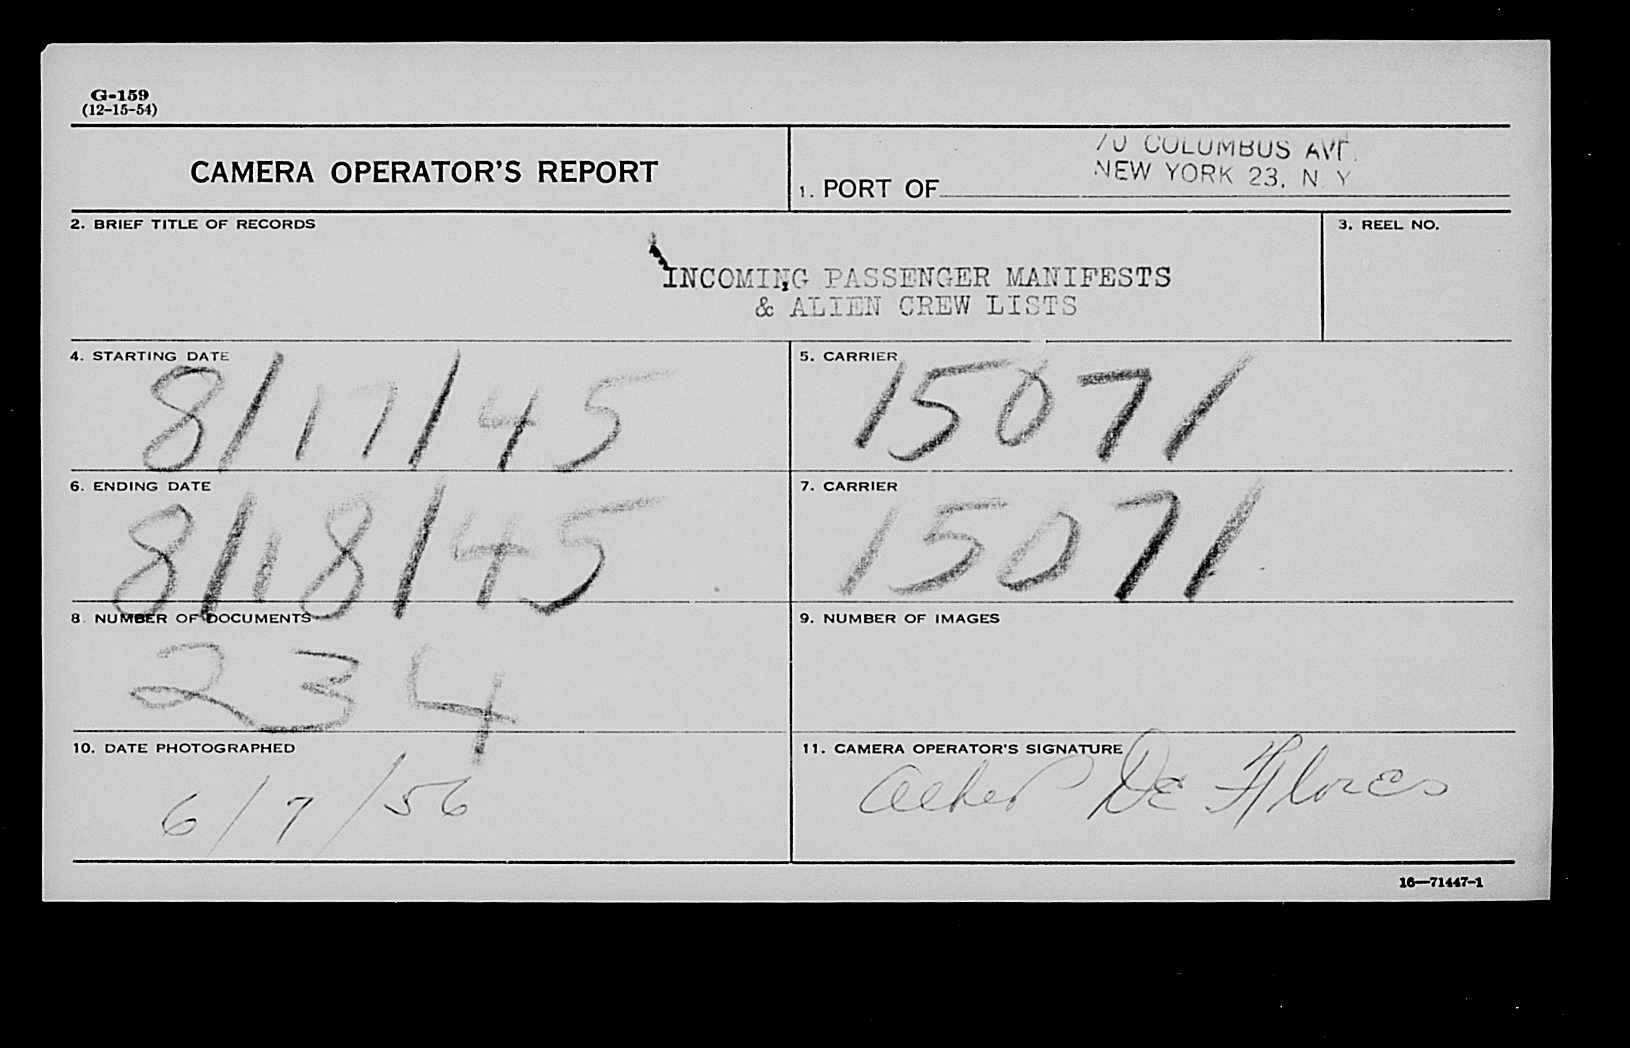 G-159
(12-15-54)
CAMERA OPERATOR'S REPORT
70 COLUMBUS AVE.
NEW YORK 23, N Y
1. PORT OF
2. BRIEF TITLE OF RECORDS
3. REEL NO.
INCOMING PASSENGER MANIFESTS
& ALIEN CREW LISTS
4. STARTING DATE
8/17/45
5. CARRIER
15071
6. ENDING DATE
8/18/45
7. CARRIER
15071
8. NUMBER OF DOCUMENTS
234
9. NUMBER OF IMAGES
10. DATE PHOTOGRAPHED
6/7/56
11. CAMERA OPERATOR'S SIGNATURE
De Flores
16—71447-1